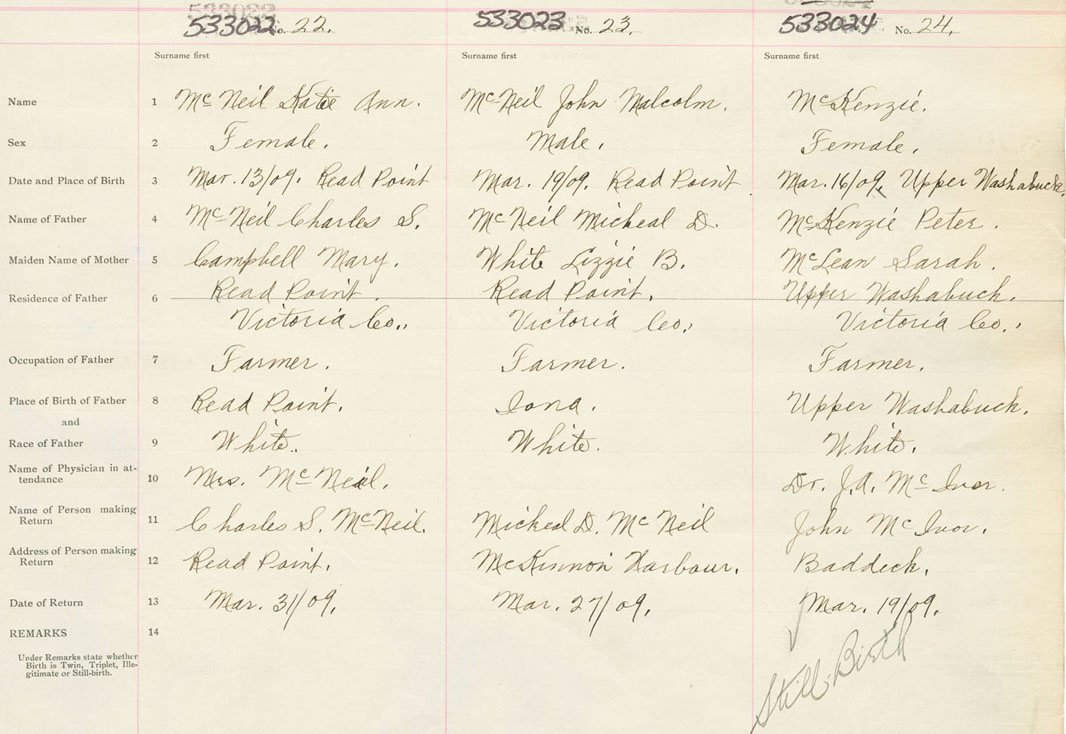 533022 No. 22. 533023 No. 23. 533024 No. 24.
Surname first Surname first Surname first
Name 1 Mc Neil Katie Ann. McNeil John Malcolm. McKenzie.
Sex 2 Female. Male. Female.
Date and Place of Birth 3 Mar. 13/09. Read Point Mar. 19/09. Read Point Mar. 16/09. Upper Washabuck.
Name of Father 4 McNeil Charles S. McNeil Micheal D. McKenzie Peter.
Maiden Name of Mother 5 Campbell Mary. White Lizzie B. McLean Sarah.
Residence of Father 6 Read Point. Read Point. Upper Washabuck.
Victoria Co., Victoria Co., Victoria Co.,
Occupation of Father 7 Farmer. Farmer. Farmer.
Place of Birth of Father 8 Read Point. Iona. Upper Washabuck.
and
Race of Father 9 White. White. White.
Name of Physician in at-
tendance 10 Mrs. McNeil. Dr. J.A. McIvor.
Name of Person making
Return 11 Charles S. McNeil. Micheal D. McNeil John McIvor.
Address of Person making
Return 12 Read Point. McKinnon Harbour. Baddeck.
Date of Return 13 Mar. 31/09. Mar. 27/09. Mar. 19/09.
REMARKS 14
Under Remarks state whether
Birth is Twin, Triplet, Ille-
gitimate or Still-birth.
Still Birth